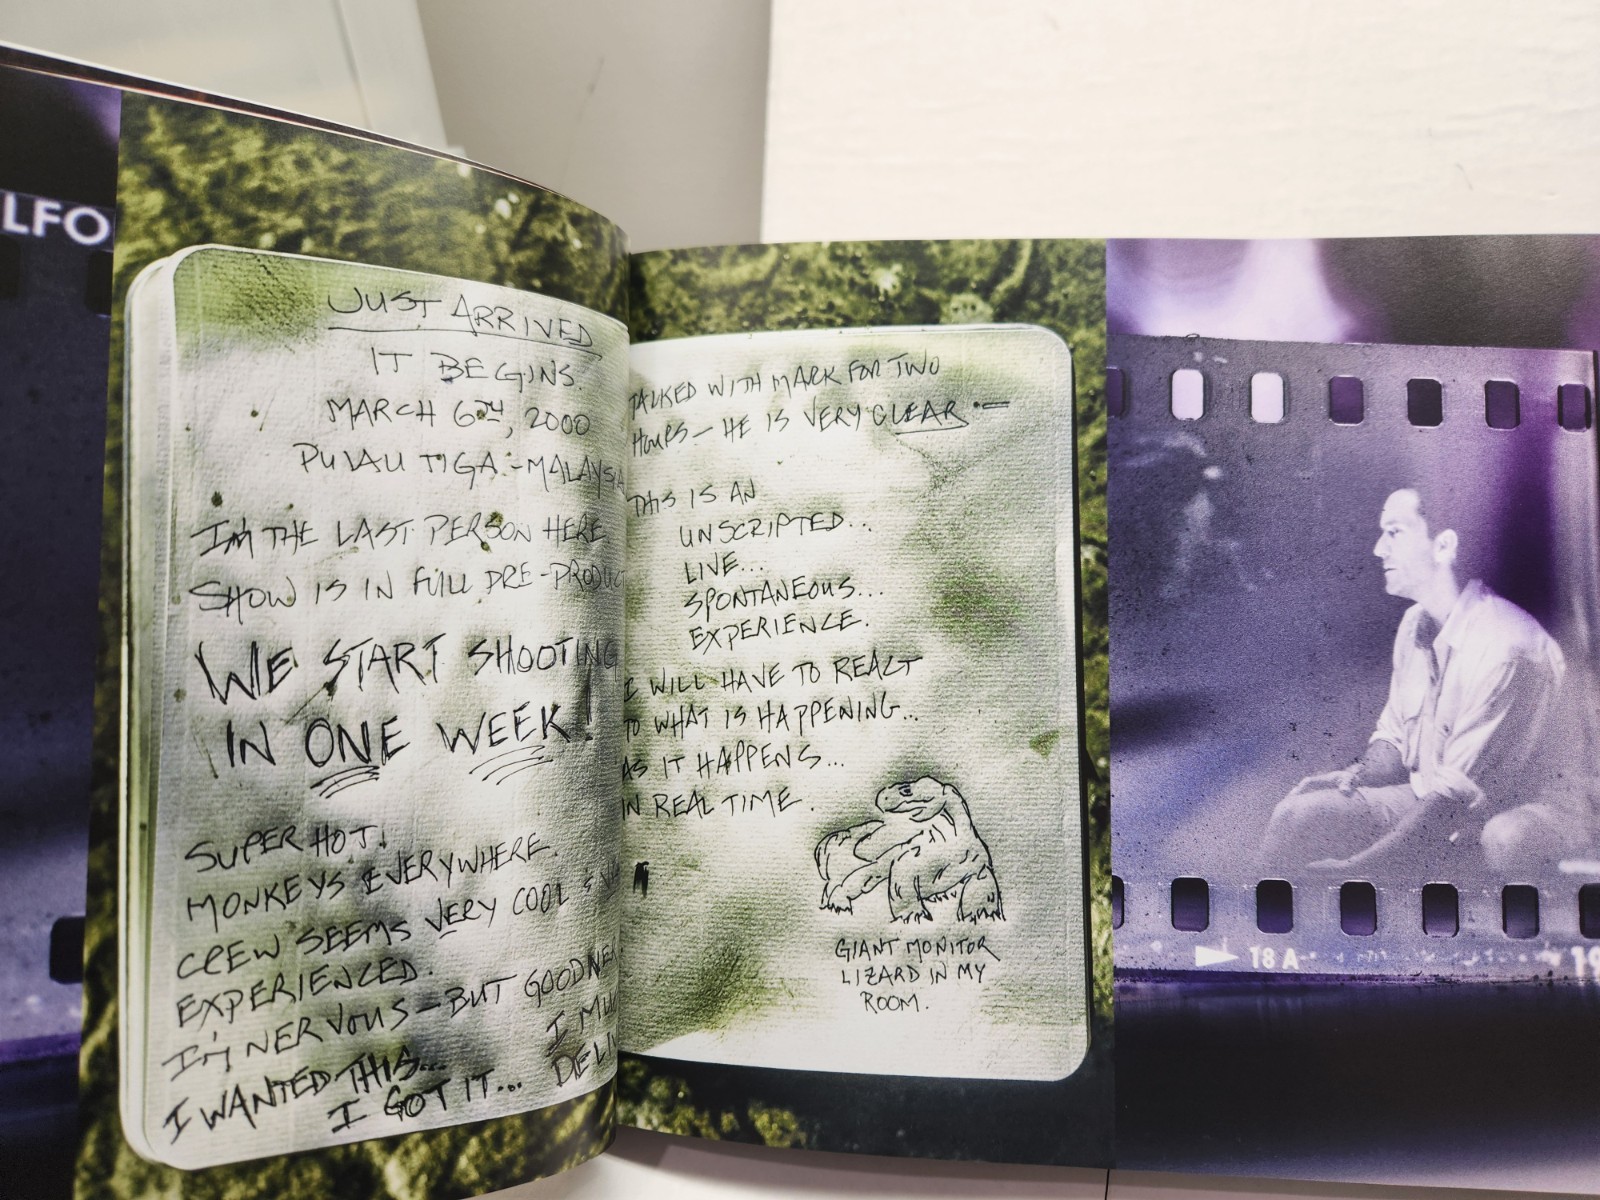 LFO
JUST ARRIVED
IT BEGINS.
MARCH 6TH, 2000
PULAU TIGA - MALAYSIA
I'M THE LAST PERSON HERE
SHOW IS IN FULL PRE-PRODUCT
WE START SHOOTING
IN ONE WEEK!
SUPER HOT!
MONKEYS EVERYWHERE.
CREW SEEMS VERY COOL &
EXPERIENCED.
I'M NERVOUS - BUT GOODNE
I WANTED THIS... I MU
I GOT IT... DELI
TALKED WITH MARK FOR TWO
HOURS - HE IS VERY CLEAR :-
THIS IS AN
UNSCRIPTED...
LIVE...
SPONTANEOUS...
EXPERIENCE.
I WILL HAVE TO REACT
TO WHAT IS HAPPENING...
AS IT HAPPENS...
IN REAL TIME.
GIANT MONITOR
LIZARD IN MY
ROOM.
18A
19